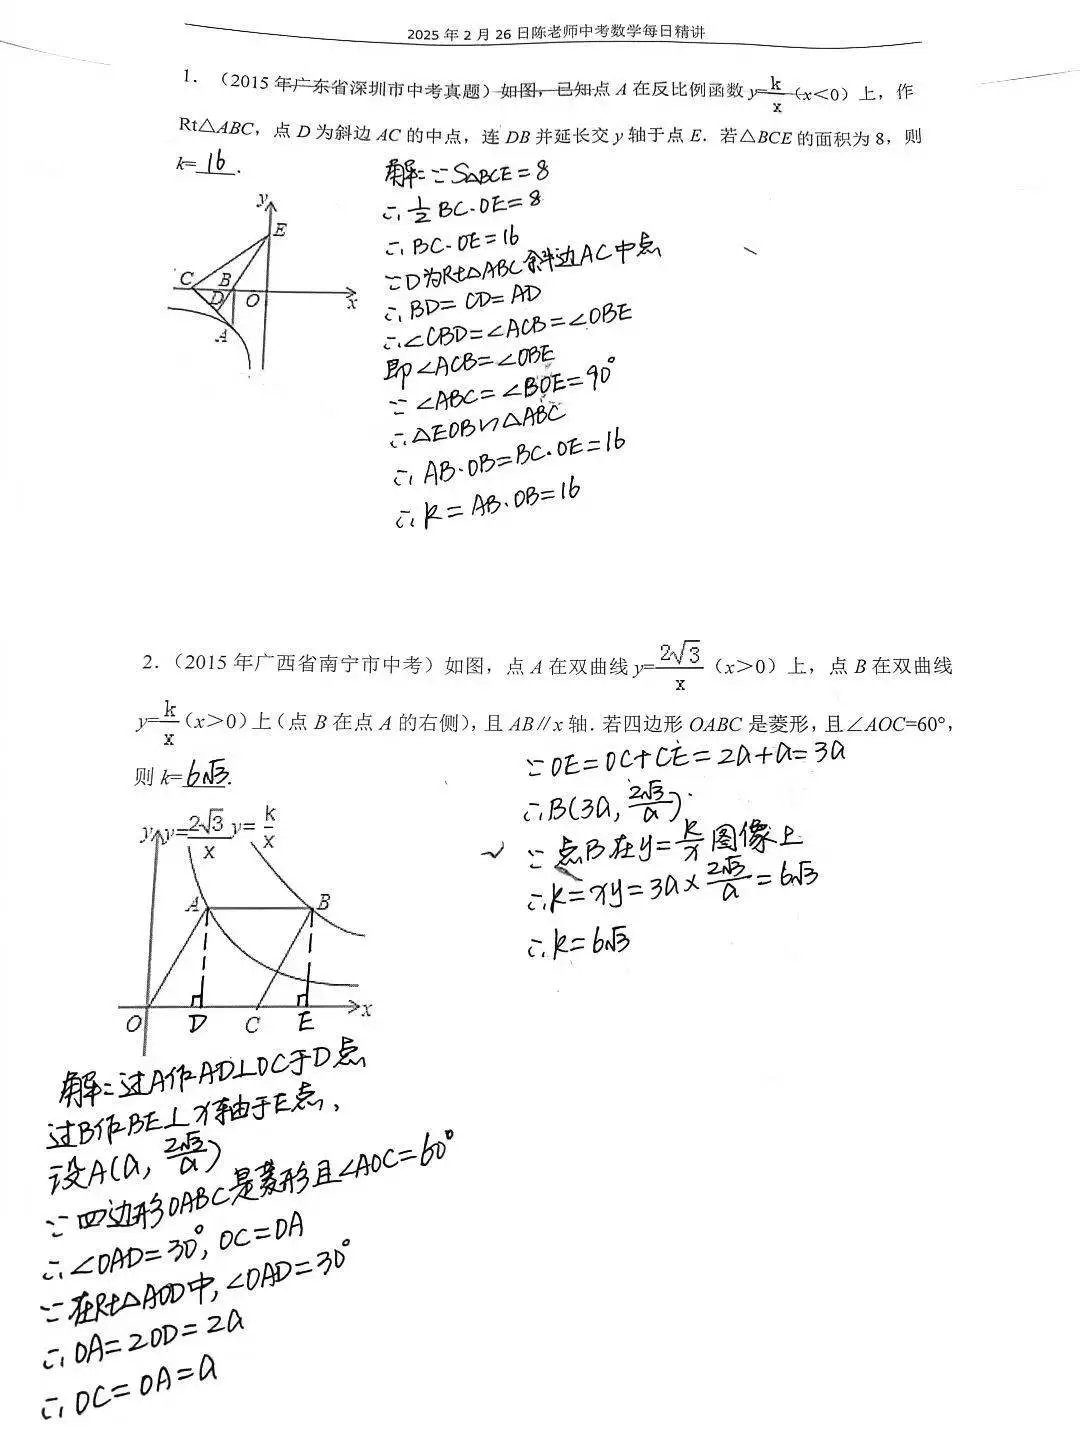 2025 年 2 月 26 日陈老师中考数学每日精讲
1. （2015 年广东省深圳市中考真题）如图，已知点 A 在反比例函数 y=k/x（x＜0）上，作
Rt△ABC，点 D 为斜边 AC 的中点，连 DB 并延长交 y 轴于点 E．若△BCE 的面积为 8，则
k=16．
解：∵S△BCE=8
∴½BC·OE=8
∴BC·OE=16
∵D为Rt△ABC斜边AC中点
∴BD=CD=AD
∴∠CBD=∠ACB=∠OBE
即∠ACB=∠OBE
∵∠ABC=∠BOE=90°
∴△EOB∽△ABC
∴AB·OB=BC·OE=16
∴k=AB·OB=16
y
E
C
B
D
O
x
A
2.（2015 年广西省南宁市中考）如图，点 A 在双曲线 y=2√3/x（x＞0）上，点 B 在双曲线
y=k/x（x＞0）上（点 B 在点 A 的右侧），且 AB∥x 轴．若四边形 OABC 是菱形，且∠AOC=60°，
则 k=6√3．
∵OE=OC+CE=2a+a=3a
∴B(3a, 2√3/a)．
∵点B在y=k/x图像上
∴k=xy=3a×2√3/a=6√3
∴k=6√3
y y=2√3/x y=k/x
A
B
O
D
C
E
x
解：过A作AD⊥OC于D点
过B作BE⊥x轴于E点，
设A(a, 2√3/a)
∵四边形OABC是菱形且∠AOC=60°
∴∠OAD=30°, OC=OA
∵在Rt△AOD中,∠OAD=30°
∴OA=2OD=2a
∴OC=OA=a